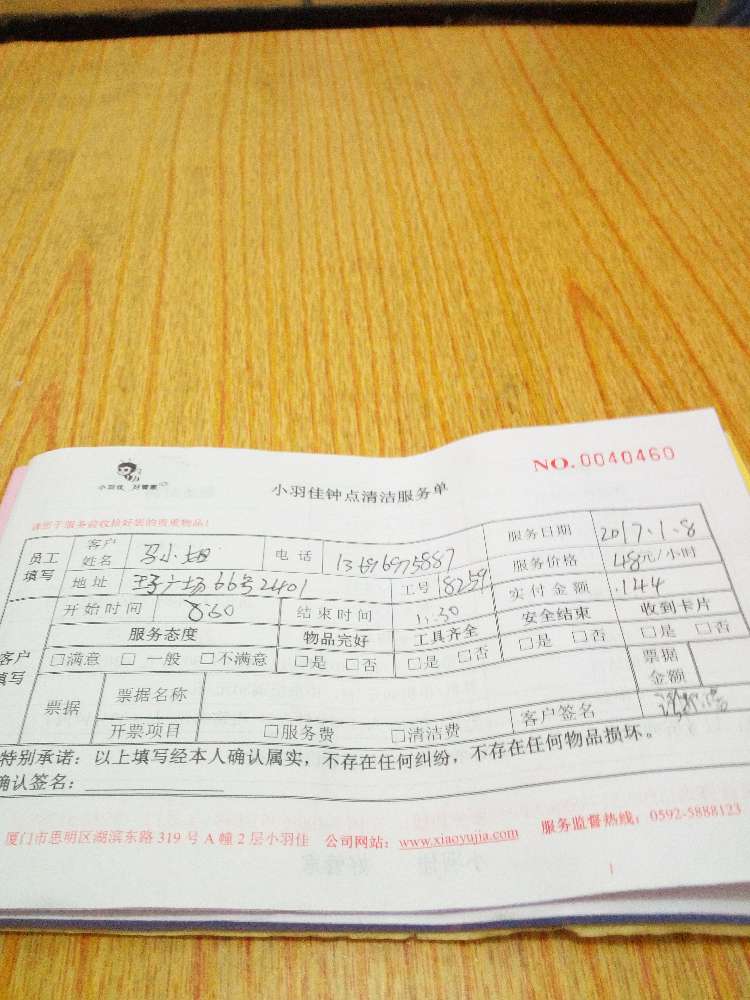 小羽佳 好管家
NO.0040460
小羽佳钟点清洁服务单
请您于服务前收拾好您的贵重物品！
员工填写 客户姓名 马小姐 电话 服务日期 2017.1.8
地址 工号 18259 服务价格 48元/小时
开始时间 8:30 结束时间 11:30 实付金额 144
客户填写 服务态度 物品完好 工具齐全 安全结束 收到卡片
□满意 □一般 □不满意 □是 □否 □是 □否 □是 □否 □是 □否
票据 票据名称 票据金额
开票项目 □服务费 □清洁费 客户签名
特别承诺：以上填写经本人确认属实，不存在任何纠纷，不存在任何物品损坏。
确认签名：
厦门市思明区湖滨东路 319 号 A 幢 2 层小羽佳 公司网站：www.xiaoyujia.com 服务监督热线：0592-5888123
1